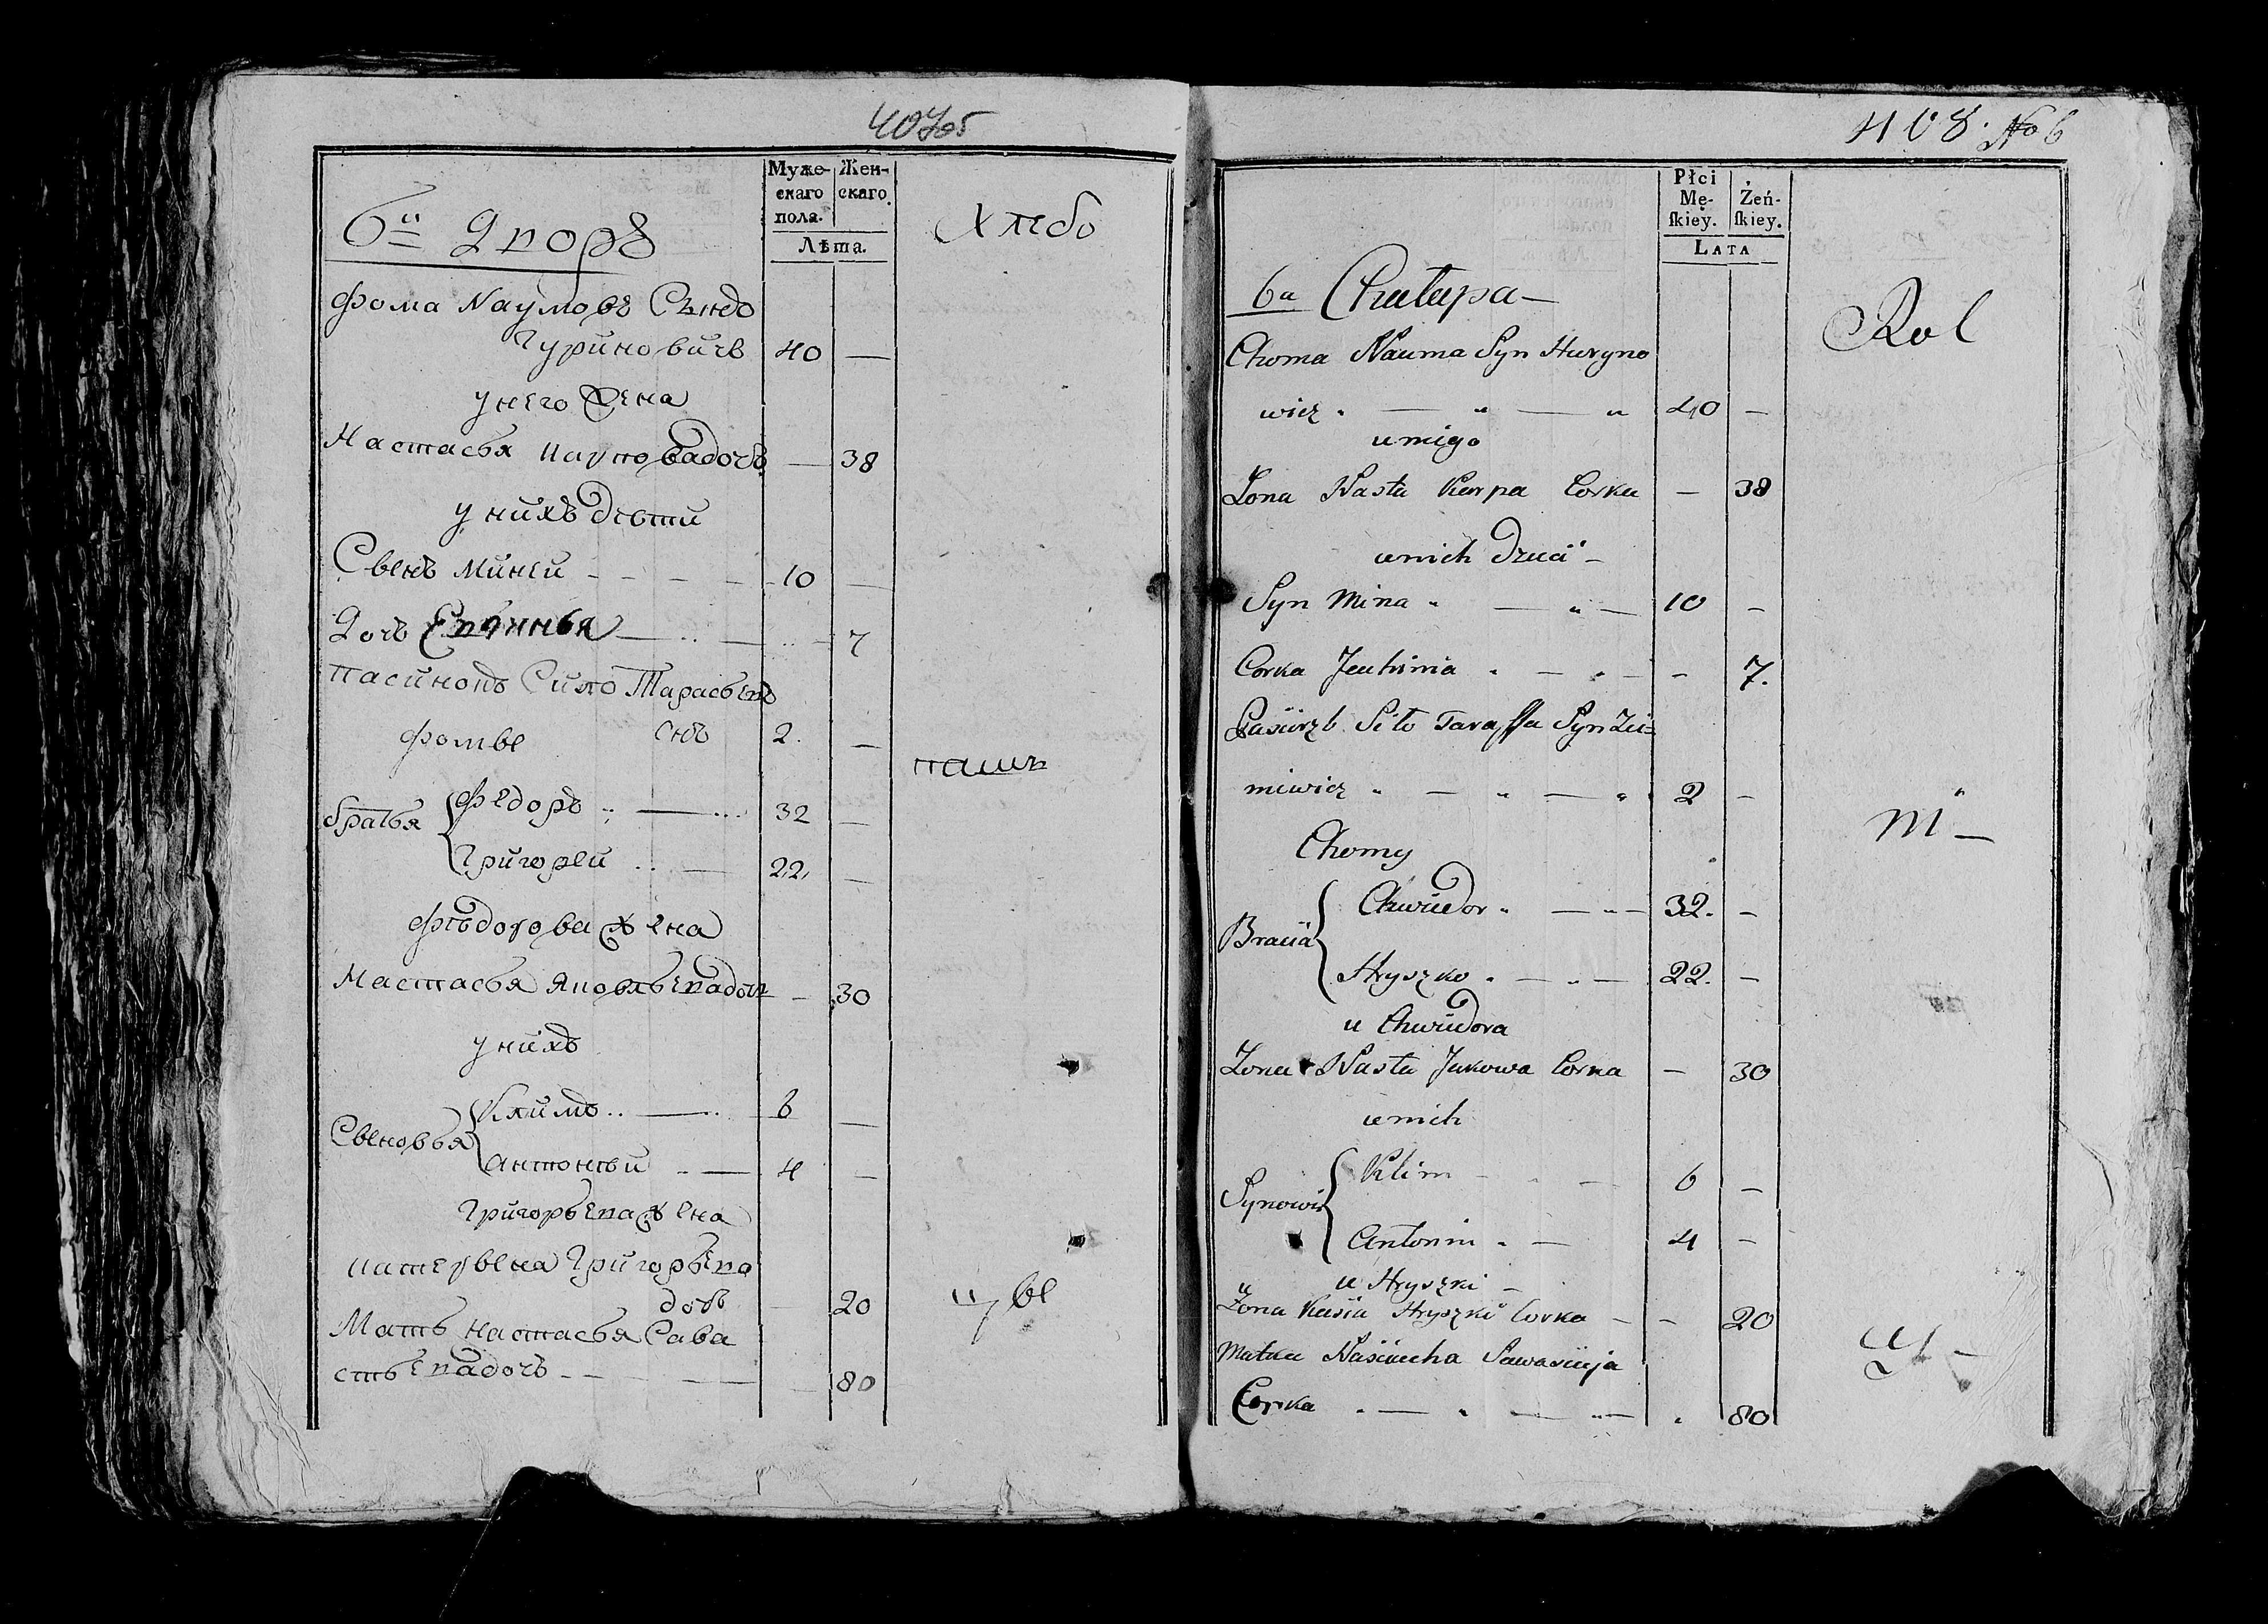 407об
Муже-
скаго
пола.
Жен-
скаго.
Лѣта.
6й Дворъ
Хлебо
Фома Наумовъ Сынъ
Гуриновичъ 40 —
у него жена
Настасья Карповадочь — 38
у нихъ дѣти
Сынъ Миней - - - - 10 —
Дочь Евхинья — 7
пасинокъ Сило Тарасьевъ
Фомы снъ 2. —
пашъ
братья Федоръ — 32 —
Григорей .. — 22 —
Фѣдорова жена
Настасья Яковлевадочь — 30
у нихъ
Сыновья Климъ .. — 6 —
Антонѣй .. — 4 —
Григорьева жена
Катерына Григорьева
дочь — 20
цы
Мать Настасья Сава
стьевадочь - - — 80
408. No 6
Płci
Mę-
skiey.
Żeń-
skiey.
LATA
6a Chałupa —
Rol
Choma Nauma Syn Huryno
wicz „ — „ — „ 40 —
u niego
Zona Nasta Karpa Corka — 38
u nich Dzieci —
Syn Mina „ — „ — 10 —
Corka Jeuhinia „ — „ — - 7.
Pasierzb Siło Tarassa Syn
miewicz „ — „ — „ 2 —
ni —
Chomy
Bracia Chwiedor „ — „ — 32. —
Hryszko „ — „ — 22. —
u Chwiedora
Zona Nasta Jakowa Corka — 30
u nich
Synowie Klim — 6 —
Antonni „ — 4 —
u Hryszki —
Zona Kasia Hryszki Corka — - 20
cy —
Matka Nasciucha Sawasciеja
Corka „ — „ — „ — „ 80